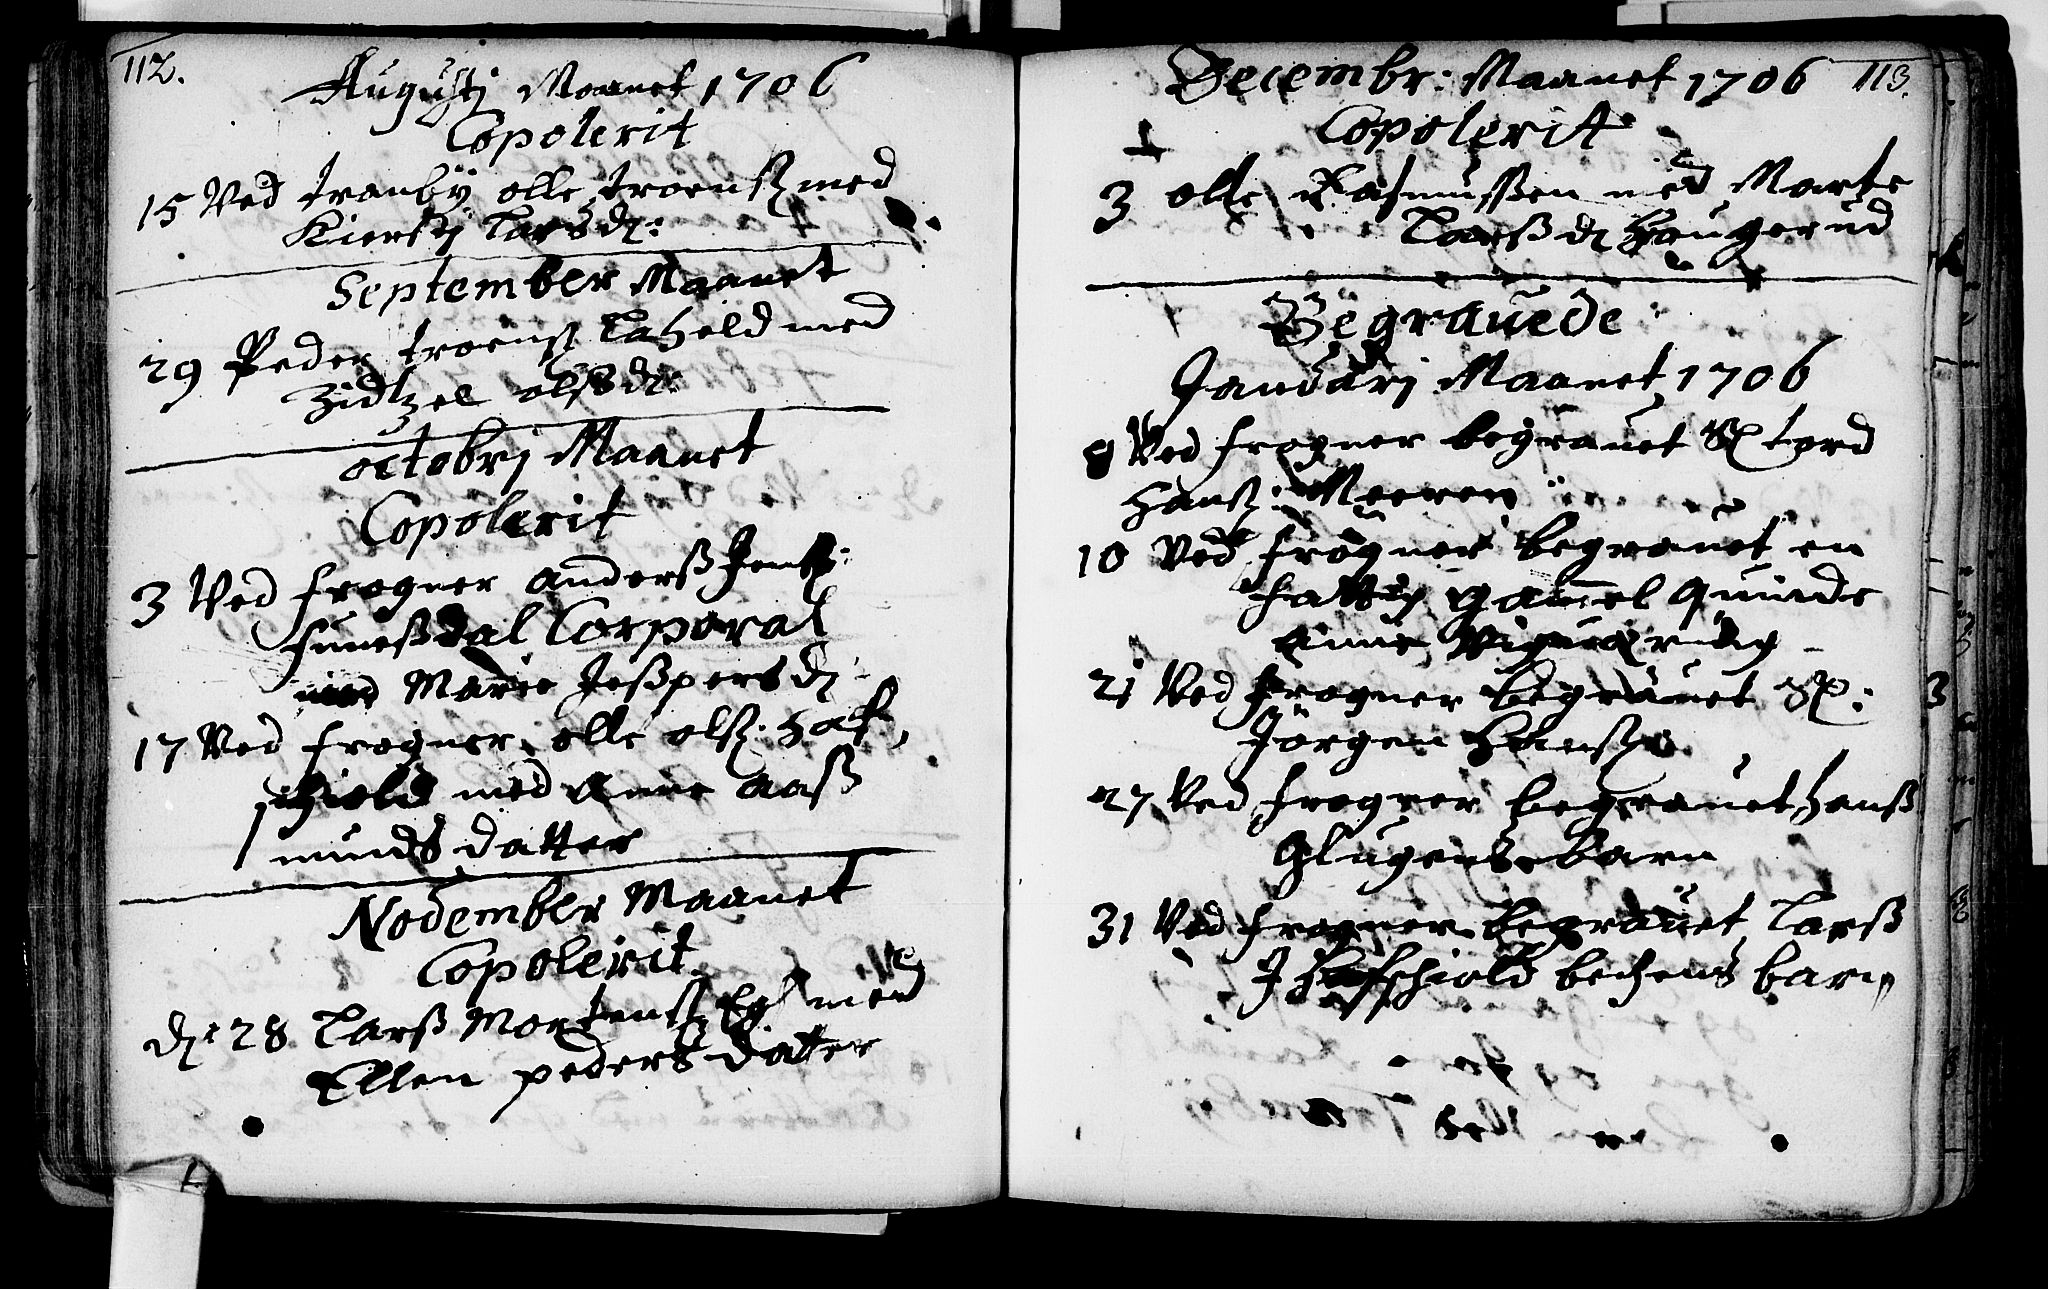 112.
Augustj Maanet 1706
Copolerit
15 Ved tranbÿ olle troensß med
Kierstj Larsdr:
September Maanet
29 Peder troensß med
Zidtzel olsdr:
octobrj Maanet
Copolerit
3 Ved frogner anderß Jensß:
Corporal
med Marie Jeßpersdr
17 Ved frogner olle olsß. Haf,
schiold med Anne Aaß
munds datter
November Maanet
Copolerit
dr: 28 Larß Mortensß Egh med
Ellen peders datter
Decembr: Maanet 1706 113.
Copolerit
3 olle Rasmussen med Marte
Larßdr Haugerud
Begrauede
Januarj Maanet 1706
8 Ved frogner begrauet Sl tord
Hansß: Meeren
10 Ved frogner begrauet en
fattig gamel quinde
21 Ved frogner begrauet Sl:
Jörgen Hansß
27 Ved frogner begrauet Hanß
Glugens barn
31 Ved frogner begrauet Larß
J Hafschiold bechens barn